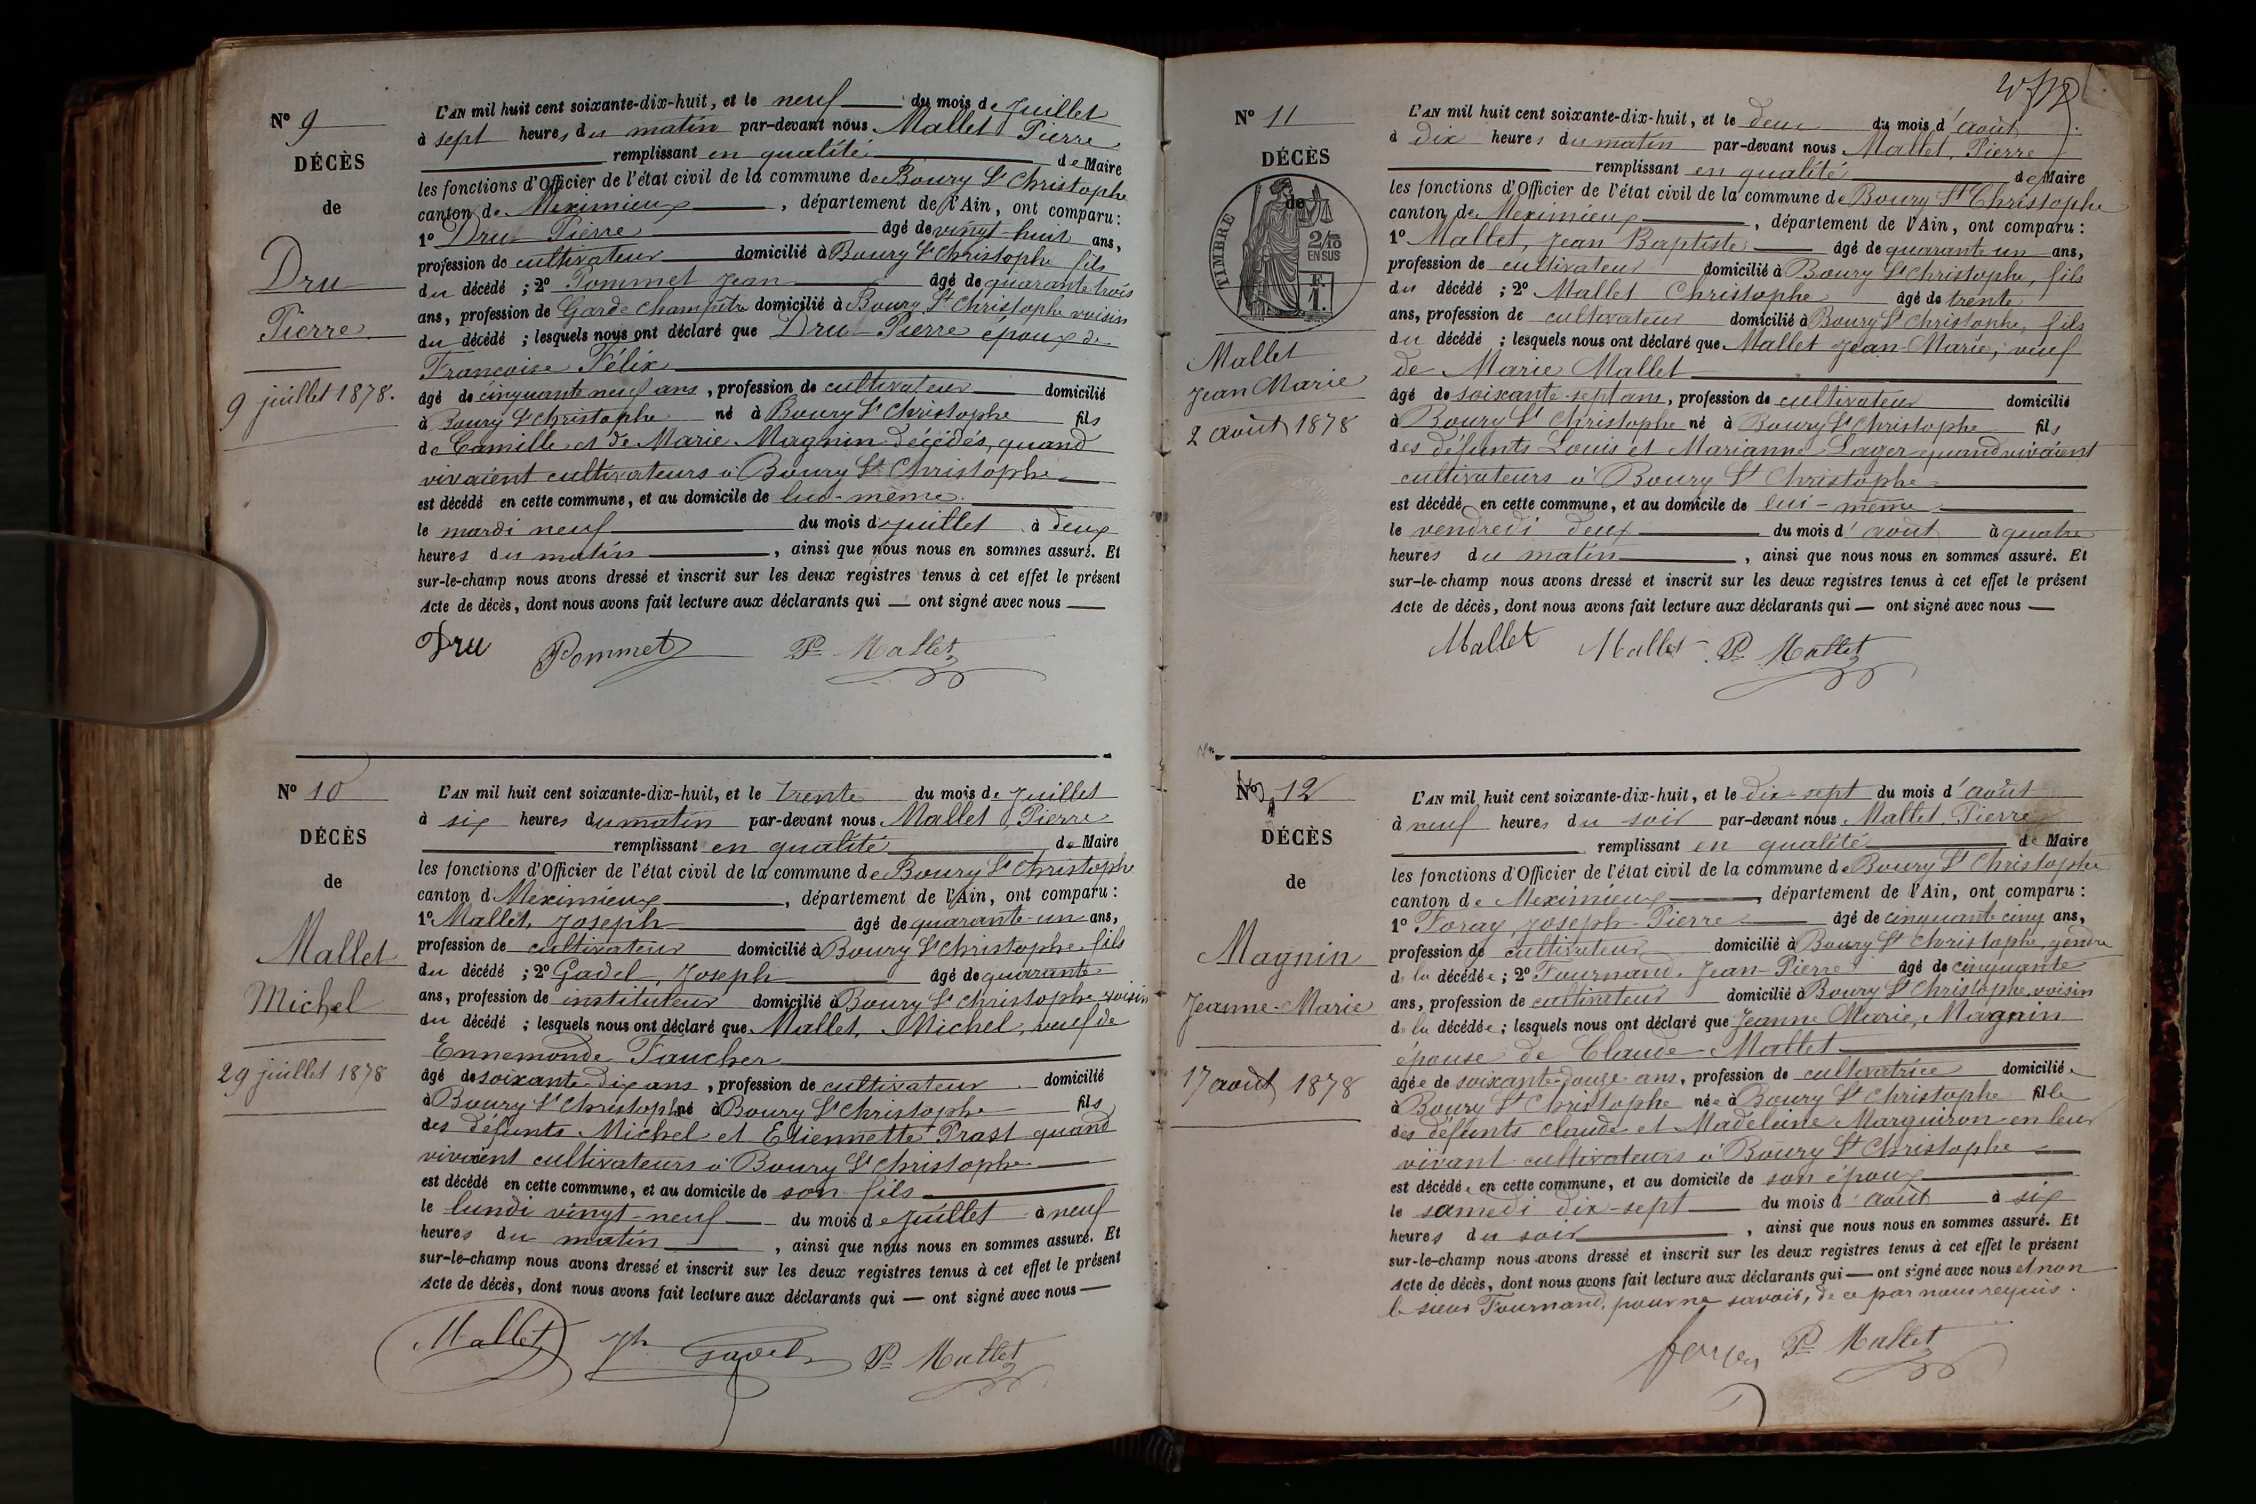 Nº 9
DÉCÈS
de
Dru
Pierre
9 juillet 1878.
L'AN mil huit cent soixante-dix-huit, et le neuf du mois de Juillet
à sept heures du matin par-devant nous Mallet Pierre
remplissant en qualité de Maire
les fonctions d'Officier de l'état civil de la commune de Boury St Christophe
canton de Meximieux, département de l'Ain, ont comparu :
1º Dru Pierre âgé de vingt-huit ans,
profession de cultivateur domicilié à Boury St Christophe fils
du décédé ; 2º Pommet Jean âgé de quarante trois
ans, profession de Garde champêtre domicilié à Boury St Christophe voisin
du décédé ; lesquels nous ont déclaré que Dru Pierre époux de
Françoise Félix
âgé de cinquante neuf ans, profession de cultivateur domicilié
à Boury St Christophe né à Boury St Christophe fils
de Camille et de Marie Magnin décédés, quand
vivaient cultivateurs à Boury St Christophe
est décédé en cette commune, et au domicile de lui-même
le mardi neuf du mois de juillet à deux
heures du matin, ainsi que nous nous en sommes assuré. Et
sur-le-champ nous avons dressé et inscrit sur les deux registres tenus à cet effet le présent
Acte de décès, dont nous avons fait lecture aux déclarants qui — ont signé avec nous —
Dru Pommet Pre Mallet
Nº 10
DÉCÈS
de
Mallet
Michel
29 juillet 1878
L'AN mil huit cent soixante-dix-huit, et le trente du mois de Juillet
à six heures du matin par-devant nous Mallet Pierre
remplissant en qualité de Maire
les fonctions d'Officier de l'état civil de la commune de Boury St Christophe
canton d Meximieux, département de l'Ain, ont comparu :
1º Mallet, Joseph âgé de quarante-un ans,
profession de cultivateur domicilié à Boury St Christophe fils
du décédé ; 2º Gadel, Joseph âgé de quarante
ans, profession de instituteur domicilié à Boury St Christophe voisin
du décédé ; lesquels nous ont déclaré que Mallet, Michel, veuf de
Ennemonde Faucher
âgé de soixante-dix ans, profession de cultivateur domicilié
à Boury St Christophe né à Boury St Christophe fils
des défunts Michel et Etiennette Prast quand
vivaient cultivateurs à Boury St Christophe
est décédé en cette commune, et au domicile de son fils
le lundi vingt-neuf du mois de Juillet à neuf
heures du matin, ainsi que nous nous en sommes assuré. Et
sur-le-champ nous avons dressé et inscrit sur les deux registres tenus à cet effet le présent
Acte de décès, dont nous avons fait lecture aux déclarants qui — ont signé avec nous —
Mallet Jh Gadel Pre Mallet
Nº 11
DÉCÈS
de
TIMBRE
2/10
EN SUS
F.
1.
Mallet
Jean Marie
2 août 1878
L'AN mil huit cent soixante-dix-huit, et le deux du mois d'août
à dix heures du matin par-devant nous Mallet, Pierre
remplissant en qualité de Maire
les fonctions d'Officier de l'état civil de la commune de Boury St Christophe
canton de Meximieux, département de l'Ain, ont comparu :
1º Mallet, Jean Baptiste âgé de quarante un ans,
profession de cultivateur domicilié à Boury St Christophe, fils
du décédé ; 2º Mallet Christophe âgé de trente
ans, profession de cultivateur domicilié à Boury St Christophe, fils
du décédé ; lesquels nous ont déclaré que Mallet Jean-Marie, veuf
de Marie Mallet
âgé de soixante-sept ans, profession de cultivateur domicilié
à Boury St Christophe né à Boury St Christophe fils
des défunts Louis et Marianne Lager quand vivaient
cultivateurs à Boury St Christophe
est décédé en cette commune, et au domicile de lui-même
le vendredi deux du mois d'août à quatre
heures du matin, ainsi que nous nous en sommes assuré. Et
sur-le-champ nous avons dressé et inscrit sur les deux registres tenus à cet effet le présent
Acte de décès, dont nous avons fait lecture aux déclarants qui — ont signé avec nous —
Mallet Mallet Pre Mallet
Nº 12
DÉCÈS
de
Magnin
Jeanne-Marie
17 août 1878
L'AN mil huit cent soixante-dix-huit, et le dix-sept du mois d'août
à neuf heures du soir par-devant nous Mallet Pierre
remplissant en qualité de Maire
les fonctions d'Officier de l'état civil de la commune de Boury St Christophe
canton de Meximieux, département de l'Ain, ont comparu :
1º Foray, Joseph-Pierre âgé de cinquante cinq ans,
profession de cultivateur domicilié à Boury St Christophe, gendre
de la décédée ; 2º Fournand, Jean-Pierre âgé de cinquante
ans, profession de cultivateur domicilié à Boury St Christophe voisin
de la décédée ; lesquels nous ont déclaré que Jeanne Marie, Magnin
épouse de Claude Mallet
âgée de soixante-douze ans, profession de cultivatrice domiciliée
à Boury St Christophe née à Boury St Christophe fille
des défunts Claude et Madeleine Marguiron en leur
vivant cultivateurs à Boury St Christophe
est décédée en cette commune, et au domicile de son époux
le samedi dix-sept du mois d'août à six
heures du soir, ainsi que nous nous en sommes assuré. Et
sur-le-champ nous avons dressé et inscrit sur les deux registres tenus à cet effet le présent
Acte de décès, dont nous avons fait lecture aux déclarants qui — ont signé avec nous et non
le sieur Fournand, pour ne savoir, de ce par nous requis.
Pre Mallet